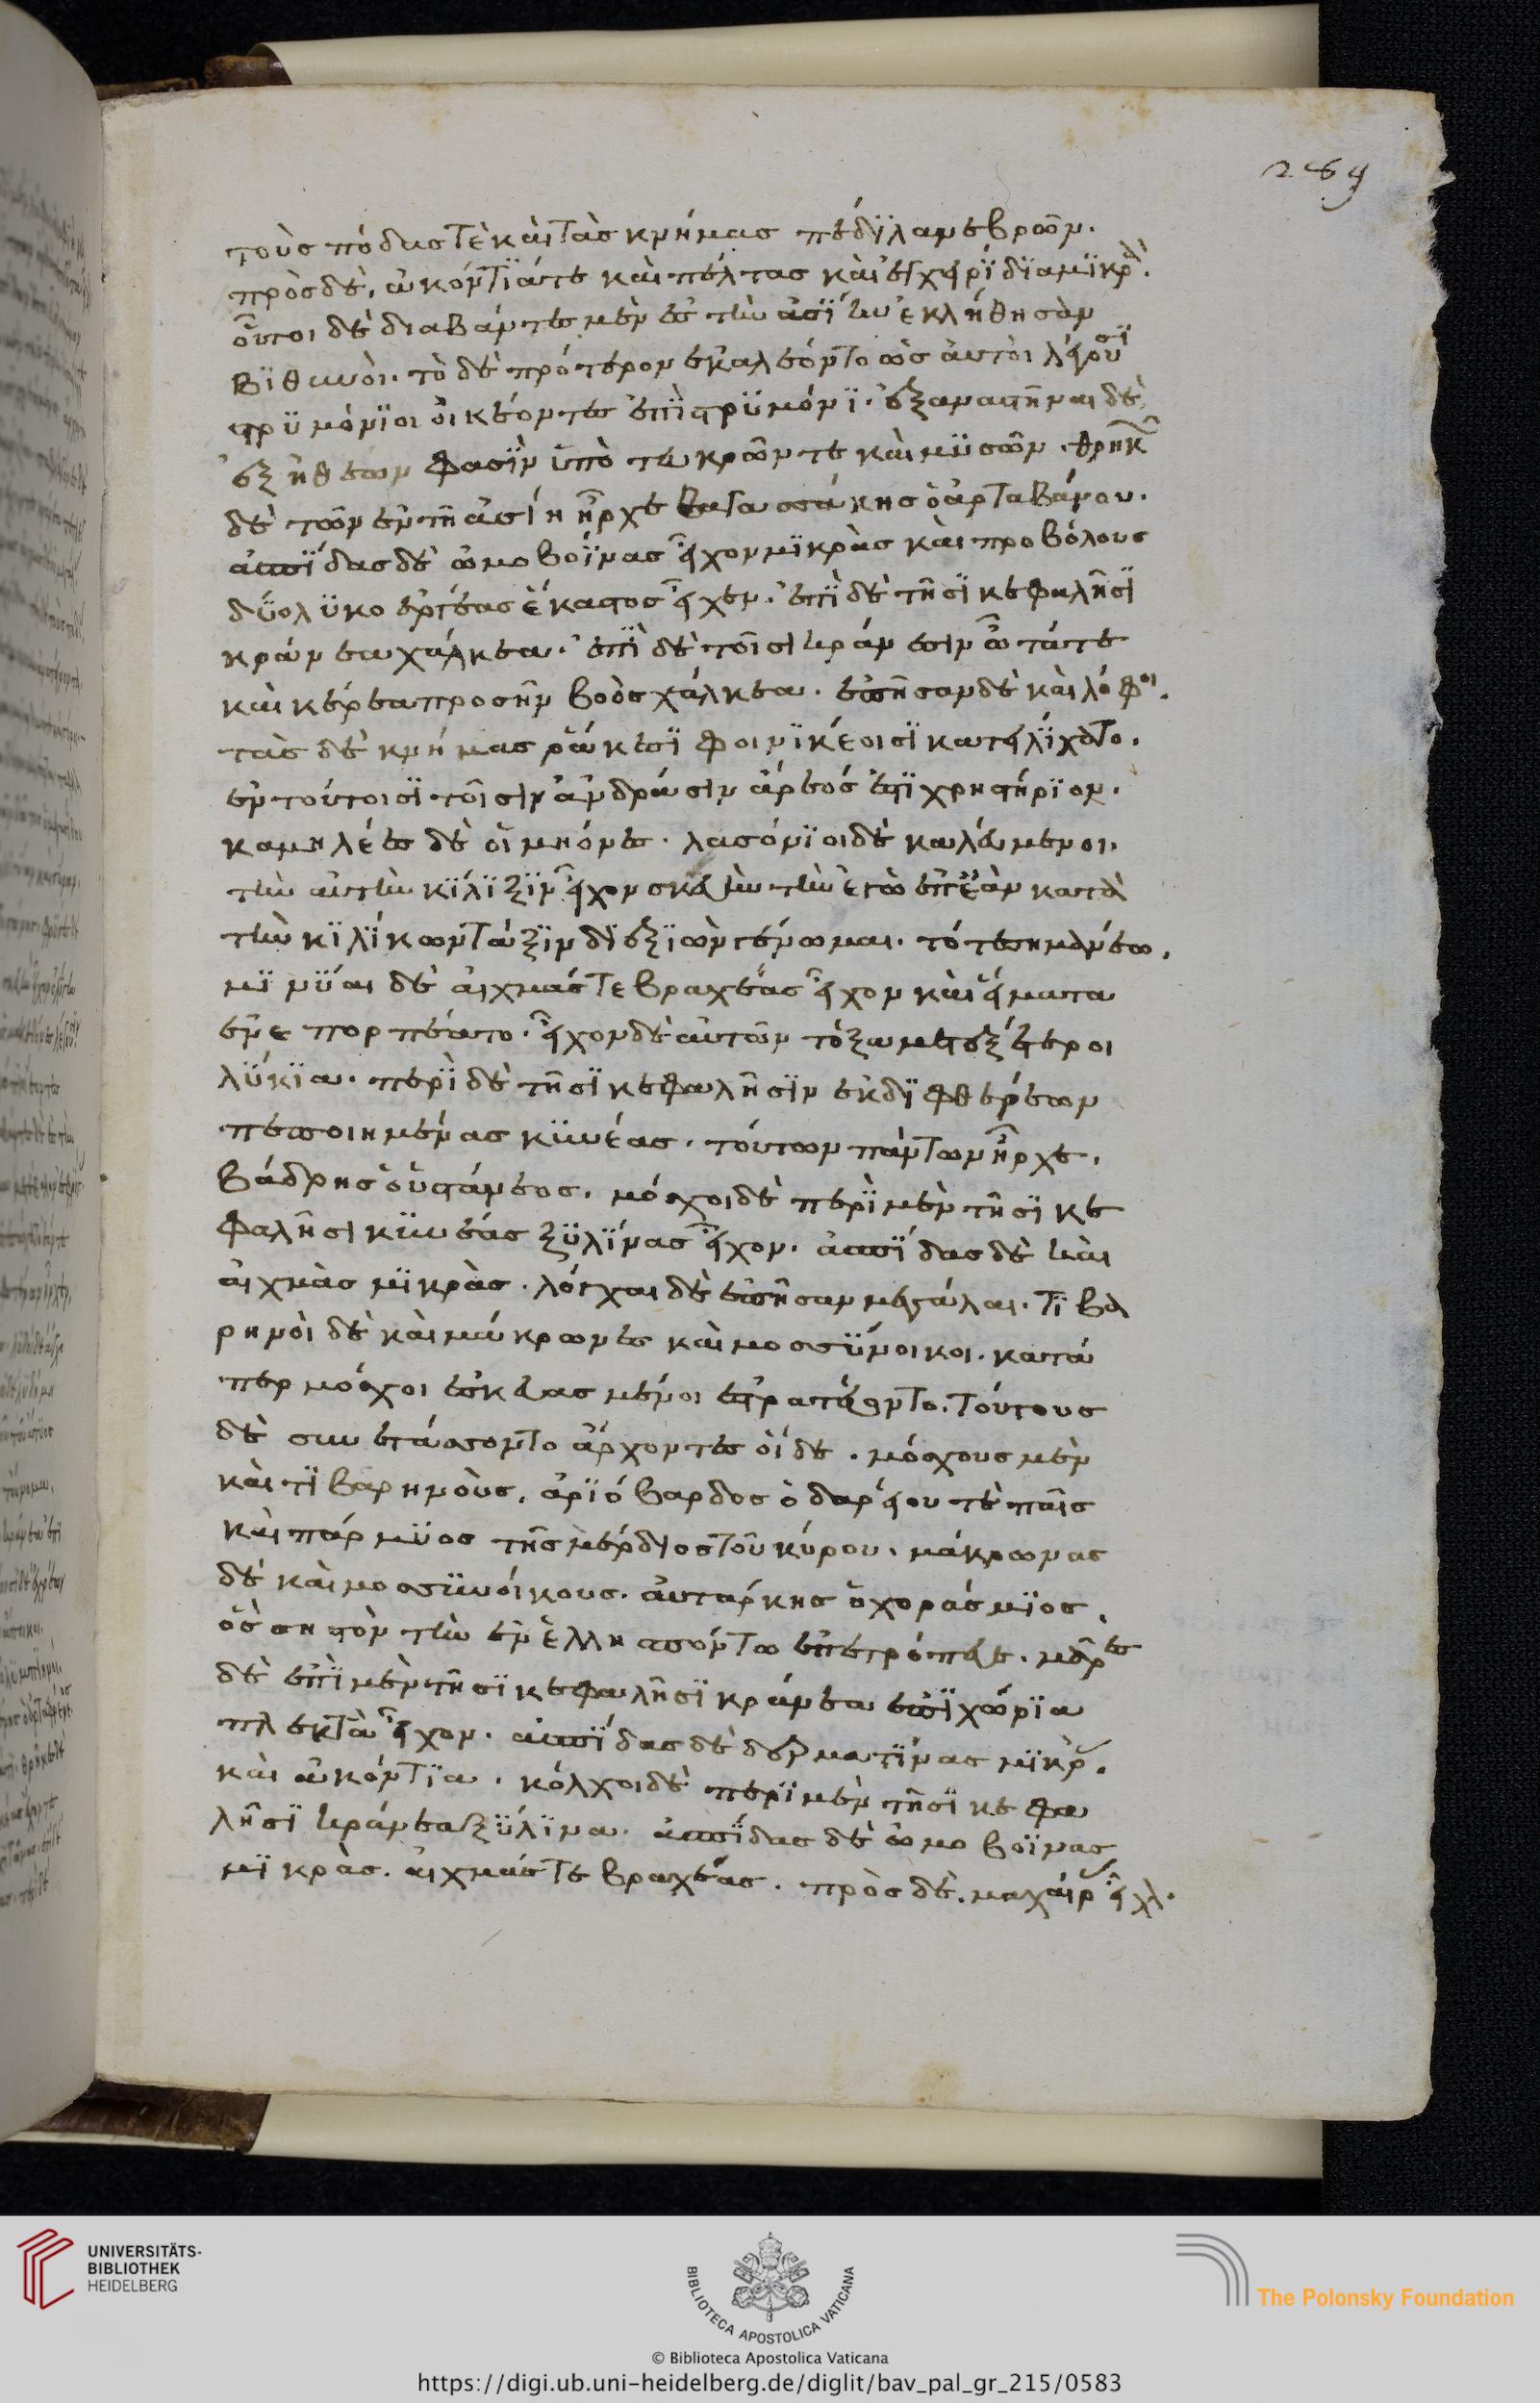 269
τοὺς πόδας τὲ καὶ τὰς κνήμας πέδϊλα νεβρῶν.
πρὸς δὲ, ἀκόντϊά τε καὶ πέλτας καὶ ἐγχειρίδϊα μϊκρὰ.
οὗτοι δὲ διαβάντες μὲν ἐς τὴν ἀσΐην ἐκλήθησαν
βϊθυνὸι. τὸ δὲ πρότερον ἐκαλέοντο ὡς ἀυτὸι λέγουσϊ
στρυμόνϊοι ὀικέοντες ἐπὶ στρυμόνϊ. ἐξαναστῆναι δὲ
ἐξ ἠθέων φασὶν ὑπὸ τευκρῶν τε καὶ μυσῶν. θρηικῶν
δὲ τῶν ἐν τῆ ἀσίη ἦρχε βαγασσάκης ὁ ἀρταβάνου.
ἀσπΐδας δὲ ὠμοβοΐνας εἶχον μϊκρὰς καὶ προβόλους
δύο λυκοεργέας ἕκαστος εἶχεν. ἐπὶ δὲ τῆσϊ κεφαλῆσϊ
κράνεα χάλκεα. ἐπὶ δὲ τοῖσι κράνεσιν ὦτά τε
καὶ κέρεα προσῆν βοὸς χάλκεα. ἐπῆσαν δὲ καὶ λόφοι.
τὰς δὲ κνήμας ῥάκεσϊ φοινϊκέοισϊ κατειλΐχατο.
ἐν τούτοισϊ τοῖσιν ἀνδράσιν ἄρεός ἐστϊ χρηστήρϊον.
καμηλέες δὲ ὁι μηόνες. λασόνϊοι δὲ καλεύμενοι.
τὴν ἀυτὴν κϊλϊξὶν εἶχον σκευὴν τὴν ἐγὼ ἐπεὰν κατὰ
τὴν κϊλΐκων τάξϊν δϊεξϊὼν γένωμαι. τότε σημανέω.
μϊλύαι δὲ ἀιχμάς τε βραχέας εἶχον καὶ εἵματα
ἐνεπορπέατο. εἶχον δὲ αὐτῶν τόξα μετεξέτεροι
λύκϊα. περὶ δὲ τῆσϊ κεφαλῆσϊν ἐκ δϊφθερέων
πεποιημένας κυνέας. τούτων πάντων ἦρχε.
βάδρης ὁ ὑστάνεος. μόσχοι δὲ περὶ μὲν τῆσϊ κε
φαλῆσι κυνέας ξυλΐνας εἶχον. ἀσπΐδας δὲ καὶ
ἀιχμὰς μϊκρὰς. λόγχαι δὲ ἐπῆσαν μεγάλαι. τϊβα
ρηνὸι δὲ καὶ μάκρωνες καὶ μοσσύνοικοι. κατά
περ μόσχοι ἐσκευασμένοι ἐστρατεύοντο. τούτους
δὲ συνετάσσοντο ἄρχοντες ὁίδε. μόσχους μὲν
καὶ τϊβαρηνοὺς, ἀρϊόβαρδος ὁ δαρείου τὲ παῖς
καὶ πάρμυος τῆς μέρδιος τοῦ κύρου. μάκρωνας
δὲ καὶ μοσσυνόικους. ἀυταρκης ὁ χοράσμϊος.
ὃς σηστὸν τὴν ἐν ἑλλησπόντω ἐπετρόπευε. μᾶρες
δὲ ἐπὶ μὲν τῆσϊ κεφαλῆσϊ κράνεα ἐπϊχώρϊα
πλεκτὰ εἶχον. ἀσπΐδας δὲ δερματΐνας μϊκράς.
καὶ ἀκόντϊα. κόλχοι δὲ περὶ μὲν τῆσϊ κεφα
λῆσϊ κράνεα ξύλϊνα. ἀσπΐδας δὲ ὠμοβοΐνας
μϊκρὰς. ἀιχμάς τε βραχέας. πρὸς δὲ. μαχάιρας εἶχον.
UNIVERSITÄTS-
BIBLIOTHEK
HEIDELBERG
BIBLIOTECA APOSTOLICA VATICANA
The Polonsky Foundation
© Biblioteca Apostolica Vaticana
https://digi.ub.uni-heidelberg.de/diglit/bav_pal_gr_215/0583